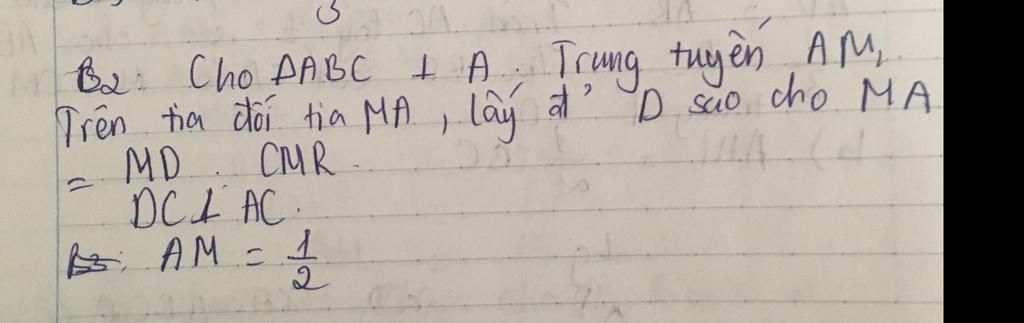 B2: Cho ΔABC ⊥ A. Trung tuyến AM,
Trên tia đối tia MA, lấy đ' D sao cho MA
= MD. CMR.
DC ⊥ AC.
AM = 1/2